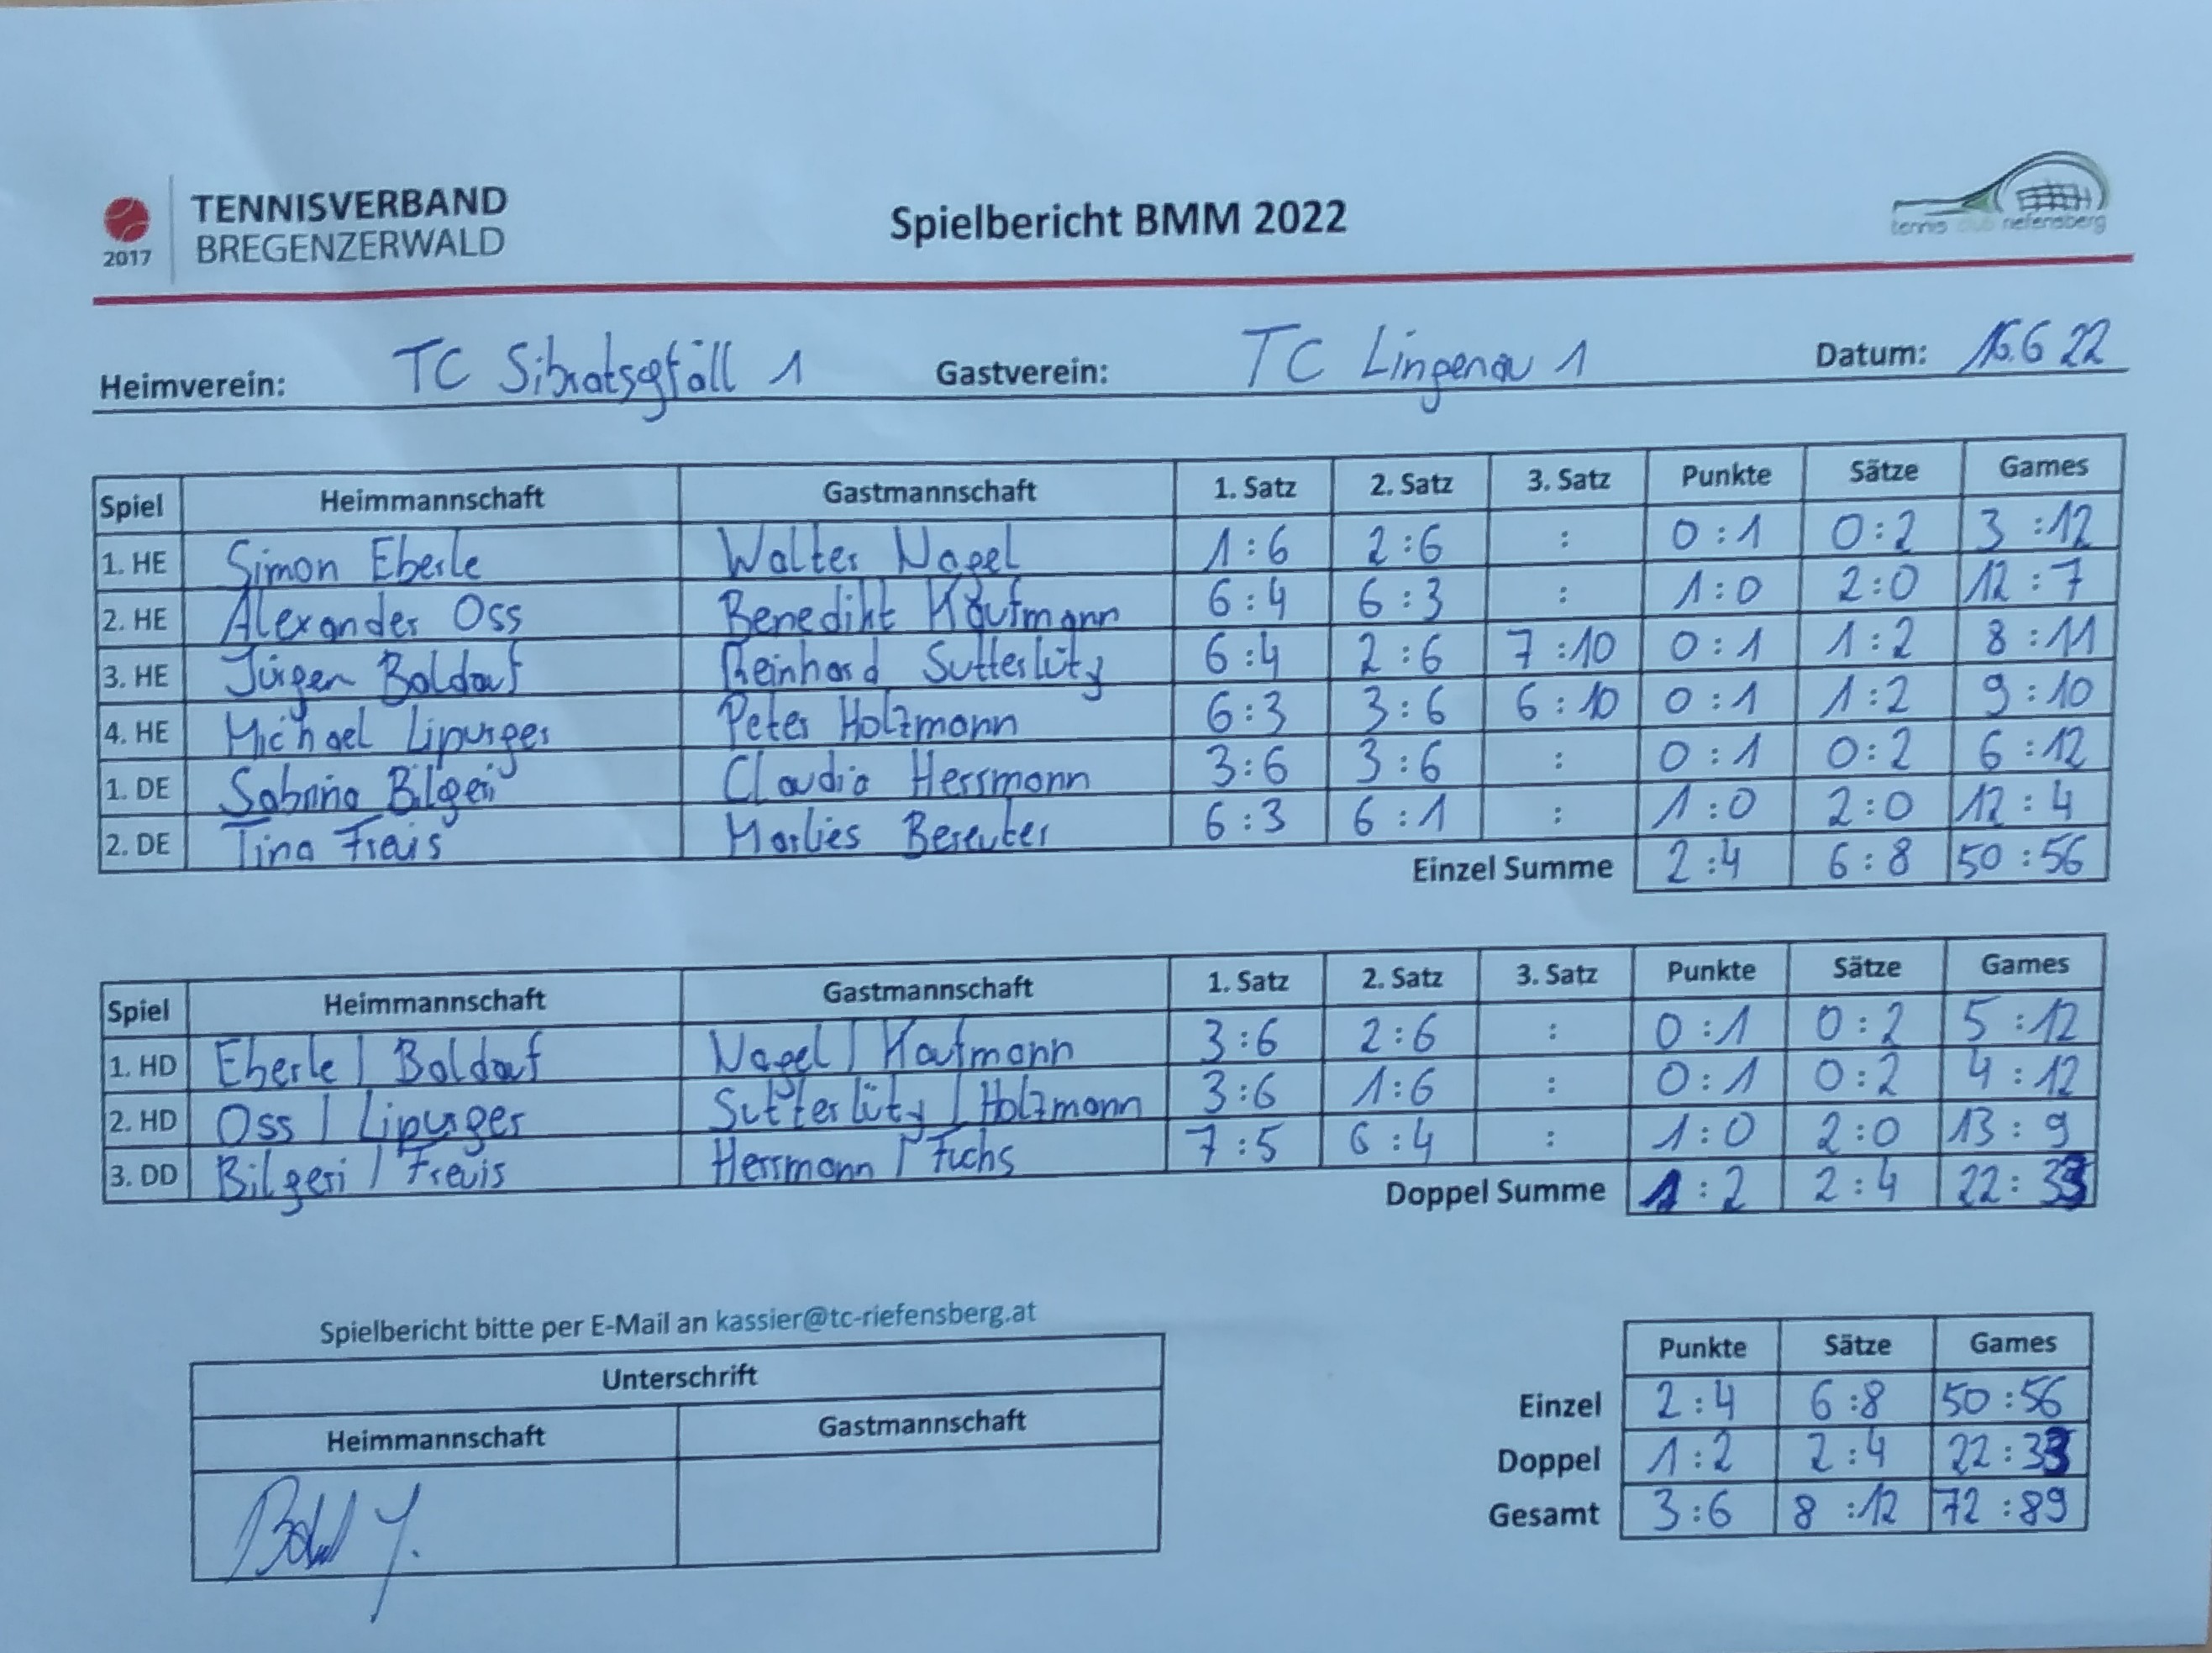 TENNISVERBAND
BREGENZERWALD
2017
Spielbericht BMM 2022
tennis club riefensberg
Heimverein: TC Sibratsgfäll 1 Gastverein: TC Lingenau 1 Datum: 16.6 22
Spiel Heimmannschaft Gastmannschaft 1. Satz 2. Satz 3. Satz Punkte Sätze Games
1. HE Simon Eberle Walter Nagel 1:6 2:6 : 0:1 0:2 3:12
2. HE Alexander Oss Benedikt Kaufmann 6:4 6:3 : 1:0 2:0 12:7
3. HE Jürgen Baldauf Reinhard Sutterlüty 6:4 2:6 7:10 0:1 1:2 8:11
4. HE Michael Lipurger Peter Holzmann 6:3 3:6 6:10 0:1 1:2 9:10
1. DE Sabrina Bilgeri Claudia Herrmann 3:6 3:6 : 0:1 0:2 6:12
2. DE Tina Freuis Marlies Bereuter 6:3 6:1 : 1:0 2:0 12:4
Einzel Summe 2:4 6:8 50:56
Spiel Heimmannschaft Gastmannschaft 1. Satz 2. Satz 3. Satz Punkte Sätze Games
1. HD Eberle / Baldauf Nagel / Kaufmann 3:6 2:6 : 0:1 0:2 5:12
2. HD Oss / Lipurger Sutterlüty / Holzmann 3:6 1:6 : 0:1 0:2 4:12
3. DD Bilgeri / Freuis Herrmann / Fuchs 7:5 6:4 : 1:0 2:0 13:9
Doppel Summe 1:2 2:4 22:33
Spielbericht bitte per E-Mail an kassier@tc-riefensberg.at
Unterschrift
Heimmannschaft Gastmannschaft
Punkte Sätze Games
Einzel 2:4 6:8 50:56
Doppel 1:2 2:4 22:33
Gesamt 3:6 8:12 72:89